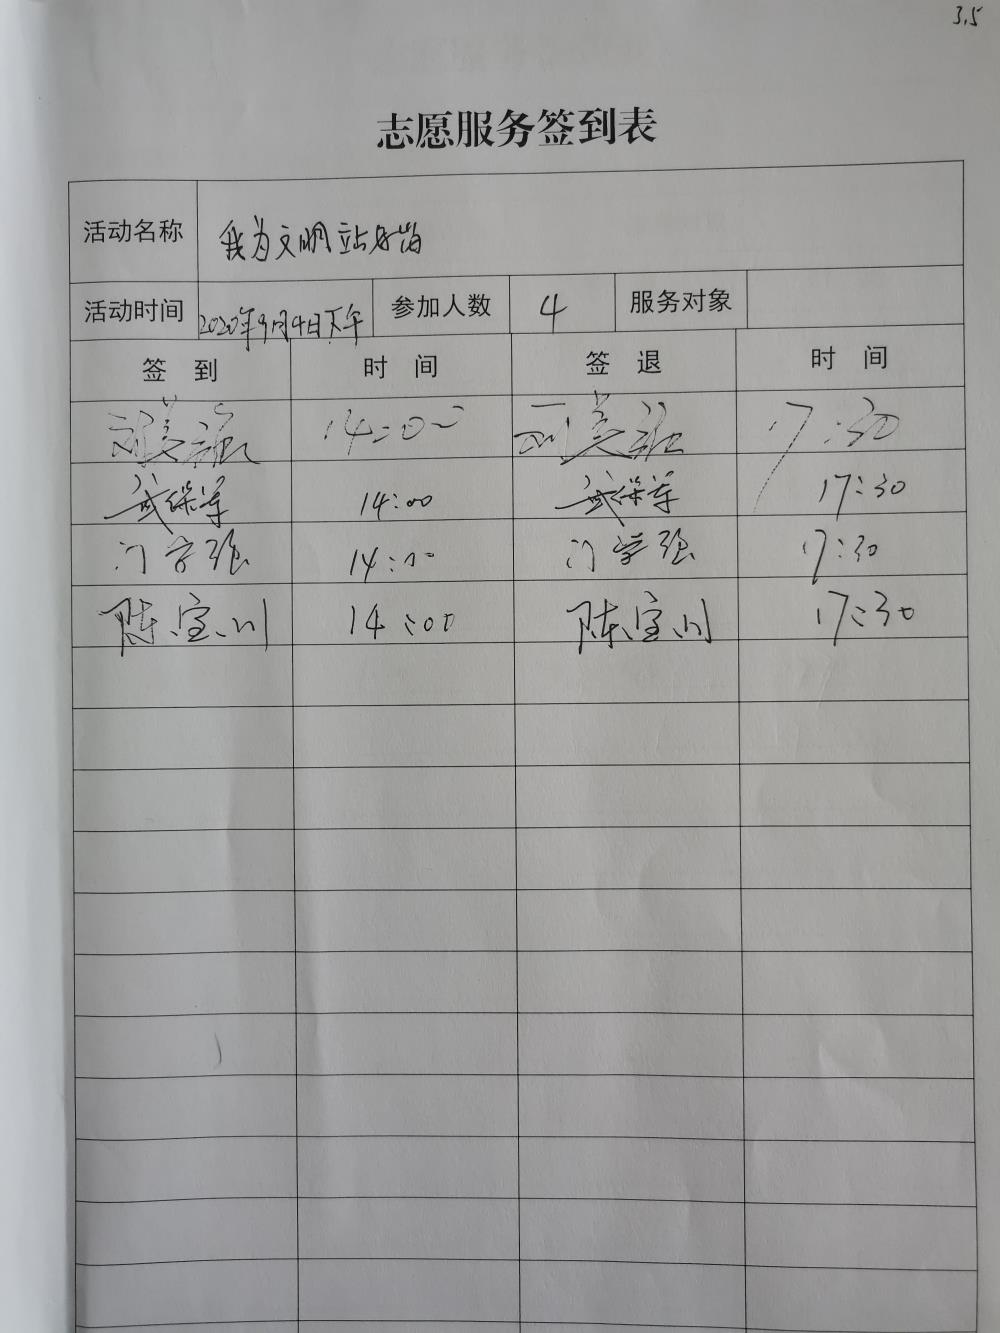 3.5
志愿服务签到表
活动名称 我为文明站好岗
活动时间 2020年9月4日下午 参加人数 4 服务对象
签 到 时 间 签 退 时 间
14:00 17:30
14:00 17:30
门学强 14:00 门学强 17:30
陈宝川 14:00 陈宝川 17:30